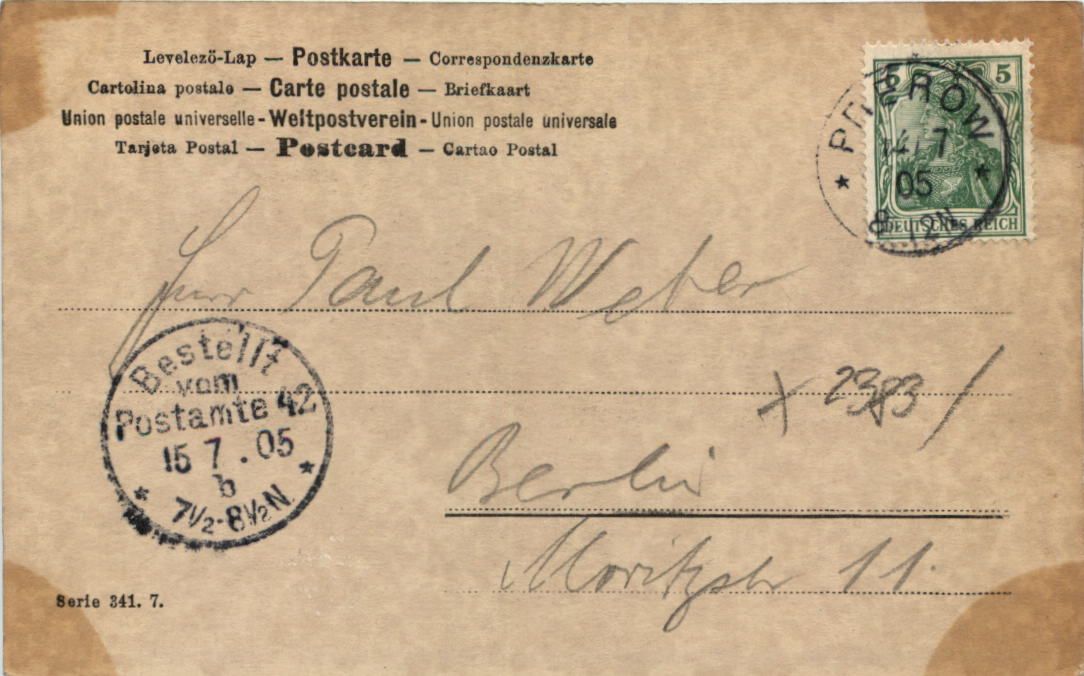 Levelező-Lap — Postkarte — Correspondenzkarte
Cartolina postale — Carte postale — Briefkaart
Union postale universelle - Weltpostverein - Union postale universale
Tarjeta Postal — Postcard — Cartao Postal
5 5
PREROW
14/7
05
8-12N
DEUTSCHES REICH
Herr Paul Weber
Bestellt
vom
Postamte 42
15 7. 05
b
7½-8½N.
Berlin
Moritzstr 11.
Serie 341. 7.